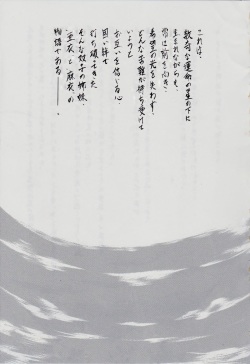 これは、
数奇な運命の星の下に
生まれながらも、
常に前を向き
希望の光を失わず、
どんな苦難が待ち受けて
いようと
お互いを信じる心で
固い絆で
打ち破ってきた
そんな双子の姉妹、
亜衣と麻衣の
物語である――。